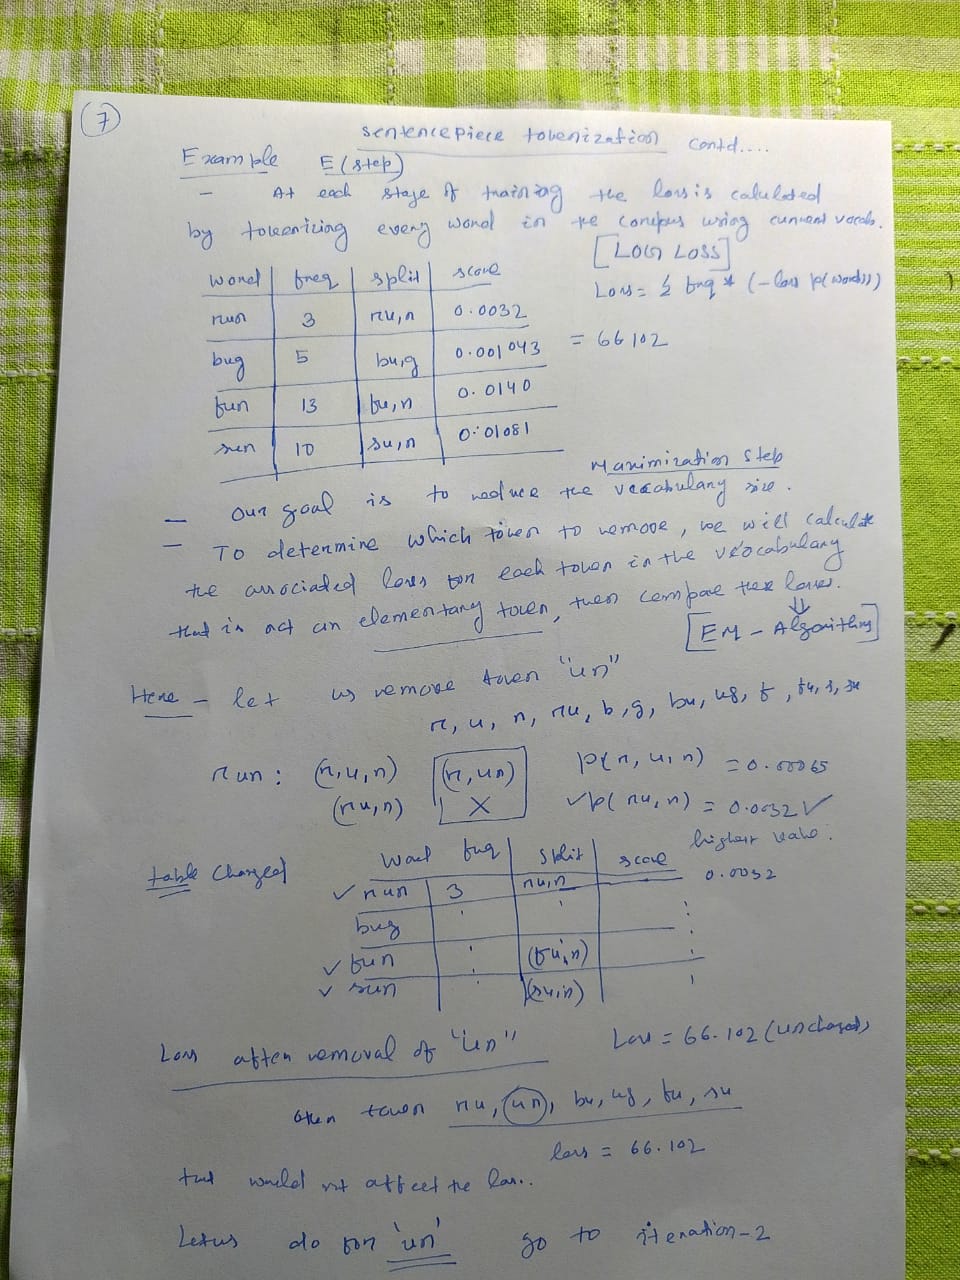 7
Sentencepiece tokenization contd....
Example E(step)
- At each stage of training the loss is calulated
by tokenizing every word in the corupus using current vocab.
[LOG LOSS]
Loss = Σ freq * (-log p(word))
= 66 102
word | freq | split | score
run | 3 | ru,n | 0.0032
bug | 5 | bu,g | 0.001043
fun | 13 | fu,n | 0.0140
sun | 10 | su,n | 0.01081
Maximization Step
- our goal is to reduce the vocabulary size.
- To determine which token to remove, we will calculate
the associated loss for each token in the vocabulary
that is not an elementary token, then compare the losses.
[EM - Algorithm]
Here - let us remove token "un"
r, u, n, ru, b, g, bu, ug, f, fu, s, su
run : (r,u,n) (r,un) p(r, u, n) = 0.00065
(ru,n) X ✓p(ru,n) = 0.0032 ✓
highest value.
table changed
word freq | split | score
✓ run | 3 | ru,n 0.0032
bug
✓ fun (fu,n)
✓ sun (su,n)
Loss after removal of "un" Loss = 66.102 (unchanged)
other token ru, un, bu, ug, fu, su
loss = 66.102
that would not affect the loss..
Letus do for 'un' go to iteration-2